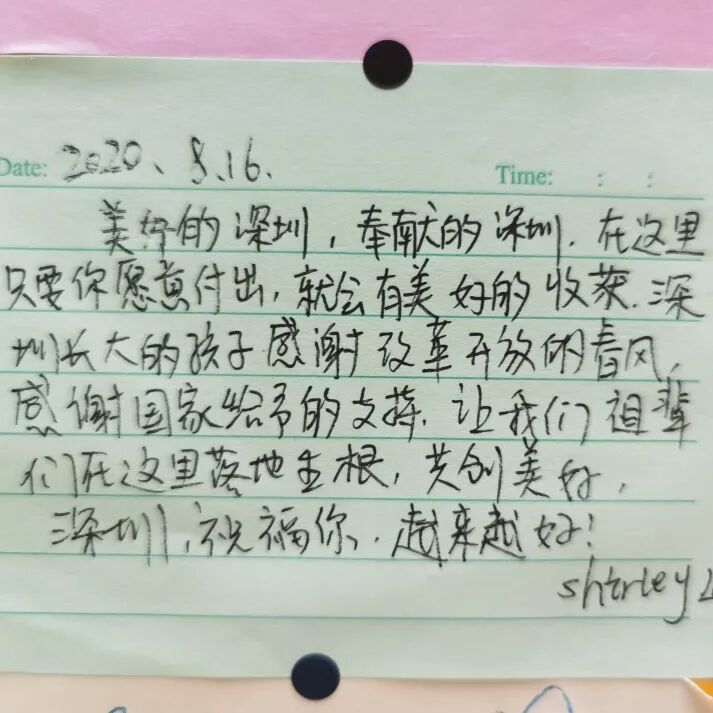 Date: 2020、8.16.
Time: : :
美好的深圳，奉献的深圳.在这里
只要你愿意付出,就会有美好的收获.深
圳长大的孩子感谢改革开放的春风,
感谢国家给予的支持.让我们祖辈
们在这里落地生根,共创美好,
深圳,祝福你.越来越好!
shirley